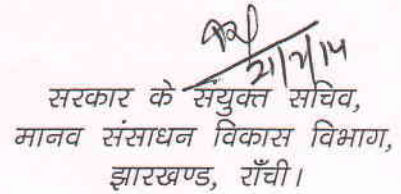 21/7/14
सरकार के संयुक्त सचिव,
मानव संसाधन विकास विभाग,
झारखण्ड, राँची।